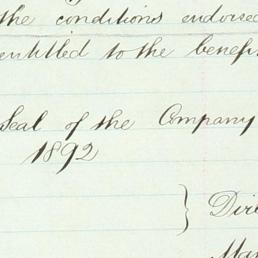 the conditions endorsed
entitled to the benefi
Seal of the Company
1892
} Dire
Man